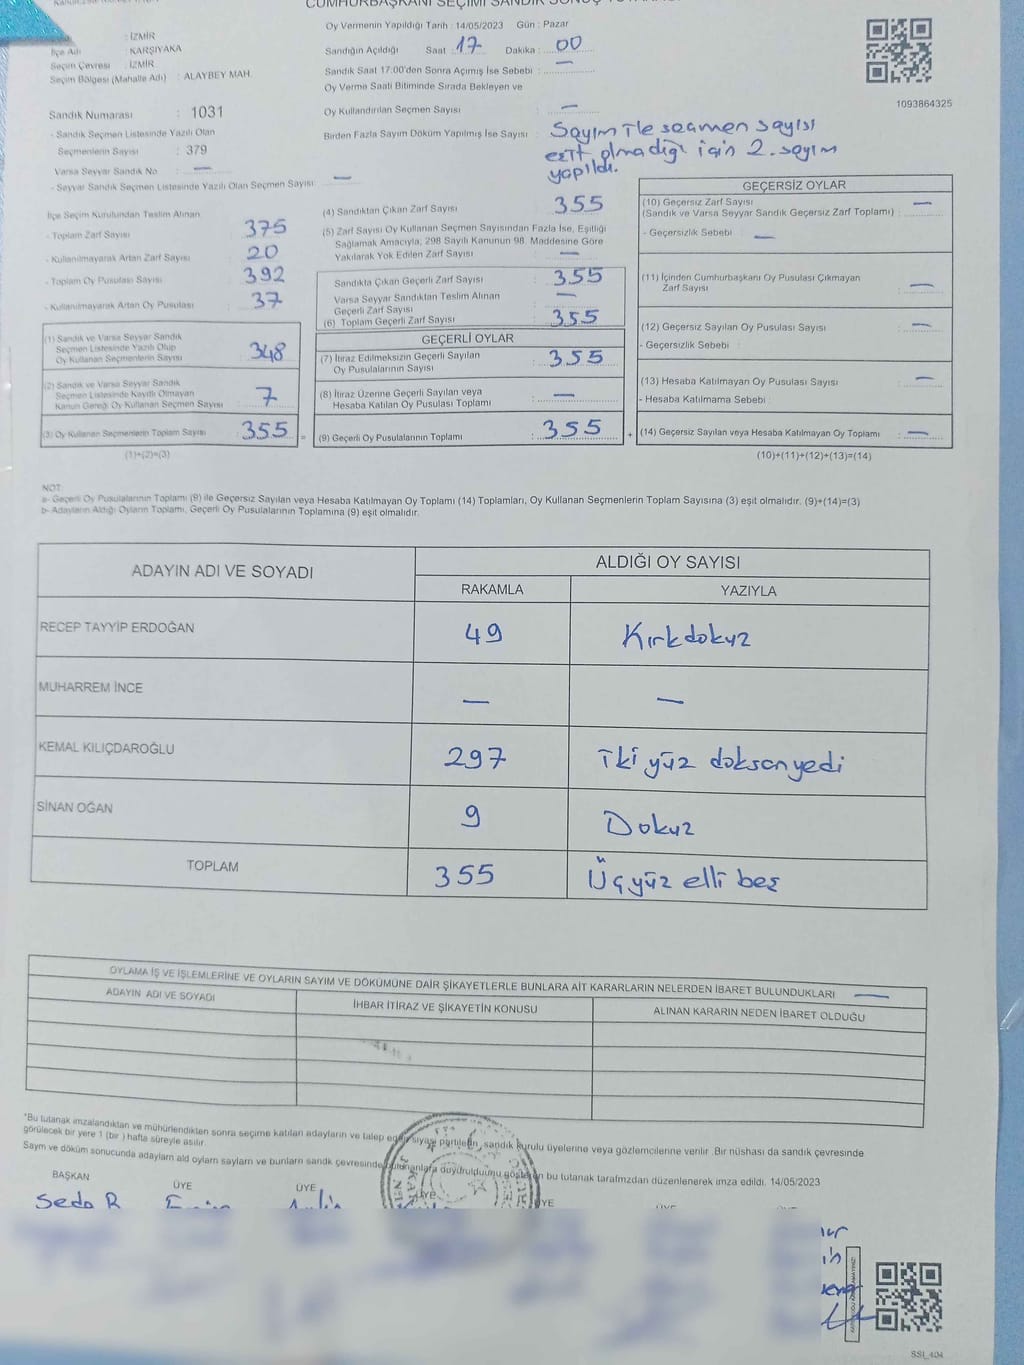 CUMHURBAŞKANI SEÇİMİ SANDIK SONUÇ TUTANAĞI
Oy Vermenin Yapıldığı Tarih : 14/05/2023 Gün : Pazar
: İZMİR
İlçe Adı : KARŞIYAKA
Seçim Çevresi : İZMİR
Seçim Bölgesi (Mahalle Adı) : ALAYBEY MAH.
Sandığın Açıldığı Saat : 17 Dakika : 00
Sandık Saat 17.00'den Sonra Açılmış İse Sebebi : —
Oy Verme Saati Bitiminde Sırada Bekleyen ve
Oy Kullandırılan Seçmen Sayısı : —
Birden Fazla Sayım Döküm Yapılmış İse Sayısı : Sayım ile seçmen sayısı
eşit olmadığı için 2. sayım
yapıldı.
1093864325
Sandık Numarası : 1031
- Sandık Seçmen Listesinde Yazılı Olan
Seçmenlerin Sayısı : 379
Varsa Seyyar Sandık No : —
- Seyyar Sandık Seçmen Listesinde Yazılı Olan Seçmen Sayısı: —
İlçe Seçim Kurulundan Teslim Alınan
- Toplam Zarf Sayısı : 375
- Kullanılmayarak Artan Zarf Sayısı : 20
- Toplam Oy Pusulası Sayısı : 392
- Kullanılmayarak Artan Oy Pusulası : 37
(1) Sandık ve Varsa Seyyar Sandık
Seçmen Listesinde Yazılı Olup
Oy Kullanan Seçmenlerin Sayısı : 348
(2) Sandık ve Varsa Seyyar Sandık
Seçmen Listesinde Kayıtlı Olmayan
Kanun Gereği Oy Kullanan Seçmen Sayısı : 7
(3) Oy Kullanan Seçmenlerin Toplam Sayısı : 355
(1)+(2)=(3)
(4) Sandıktan Çıkan Zarf Sayısı : 355
(5) Zarf Sayısı Oy Kullanan Seçmen Sayısından Fazla İse, Eşitliği
Sağlamak Amacıyla, 298 Sayılı Kanunun 98. Maddesine Göre
Yakılarak Yok Edilen Zarf Sayısı : —
Sandıkta Çıkan Geçerli Zarf Sayısı : 355
Varsa Seyyar Sandıktan Teslim Alınan
Geçerli Zarf Sayısı : —
(6) Toplam Geçerli Zarf Sayısı : 355
GEÇERLİ OYLAR
(7) İtiraz Edilmeksizin Geçerli Sayılan
Oy Pusulalarının Sayısı : 355
(8) İtiraz Üzerine Geçerli Sayılan veya
Hesaba Katılan Oy Pusulası Toplamı : —
(9) Geçerli Oy Pusulalarının Toplamı : 355
GEÇERSİZ OYLAR
(10) Geçersiz Zarf Sayısı
(Sandık ve Varsa Seyyar Sandık Geçersiz Zarf Toplamı) : —
- Geçersizlik Sebebi : —
(11) İçinden Cumhurbaşkanı Oy Pusulası Çıkmayan
Zarf Sayısı : —
(12) Geçersiz Sayılan Oy Pusulası Sayısı : —
- Geçersizlik Sebebi :
(13) Hesaba Katılmayan Oy Pusulası Sayısı : —
- Hesaba Katılmama Sebebi :
(14) Geçersiz Sayılan veya Hesaba Katılmayan Oy Toplamı : —
(10)+(11)+(12)+(13)=(14)
NOT:
a- Geçerli Oy Pusulalarının Toplamı (9) ile Geçersiz Sayılan veya Hesaba Katılmayan Oy Toplamı (14) Toplamları, Oy Kullanan Seçmenlerin Toplam Sayısına (3) eşit olmalıdır. (9)+(14)=(3)
b- Adayların Aldığı Oyların Toplamı, Geçerli Oy Pusulalarının Toplamına (9) eşit olmalıdır.
ADAYIN ADI VE SOYADI
ALDIĞI OY SAYISI
RAKAMLA YAZIYLA
RECEP TAYYİP ERDOĞAN 49 Kırkdokuz
MUHARREM İNCE — —
KEMAL KILIÇDAROĞLU 297 iki yüz doksan yedi
SİNAN OĞAN 9 Dokuz
TOPLAM 355 Üçyüz elli beş
OYLAMA İŞ VE İŞLEMLERİNE VE OYLARIN SAYIM VE DÖKÜMÜNE DAİR ŞİKAYETLERLE BUNLARA AİT KARARLARIN NELERDEN İBARET BULUNDUKLARI —
ADAYIN ADI VE SOYADI İHBAR İTİRAZ VE ŞİKAYETİN KONUSU ALINAN KARARIN NEDEN İBARET OLDUĞU
*Bu tutanak imzalandıktan ve mühürlendikten sonra seçime katılan adayların ve talep eden siyasi partilerin, sandık kurulu üyelerine veya gözlemcilerine verilir. Bir nüshası da sandık çevresinde
görülecek bir yere 1 (bir) hafta süreyle asılır.
Sayım ve döküm sonucunda adayların aldı oyların sayları ve bunların sandık çevresinde bulunanlara duyurulduğunu gösteren bu tutanak tarafımızdan düzenlenerek imza edildi. 14/05/2023
BAŞKAN ÜYE ÜYE ÜYE ÜYE
Seda R
SSİ_404